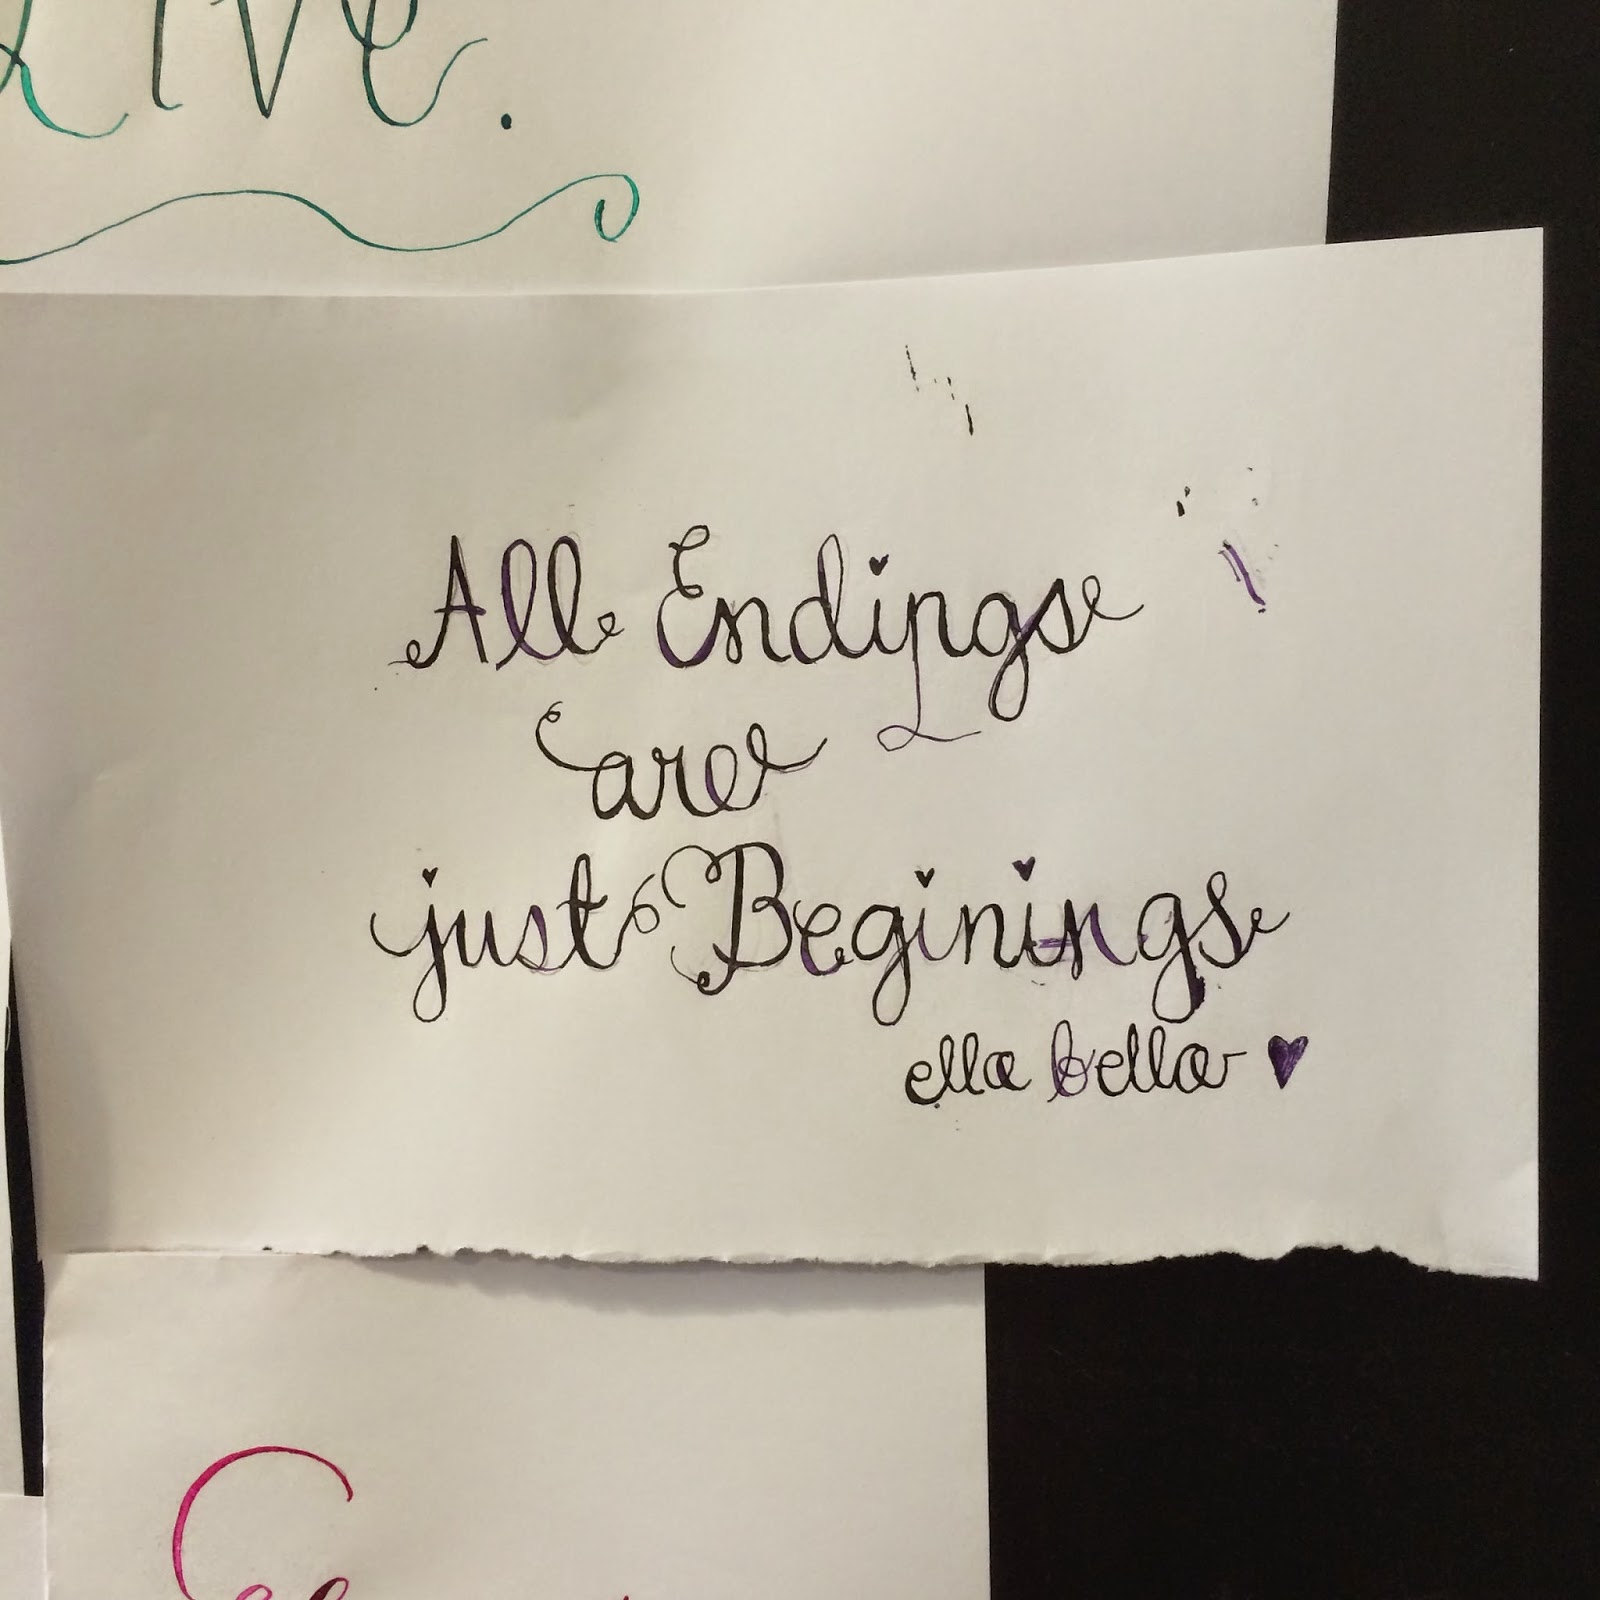 Live.
All Endings
are
just Beginings
ella bella